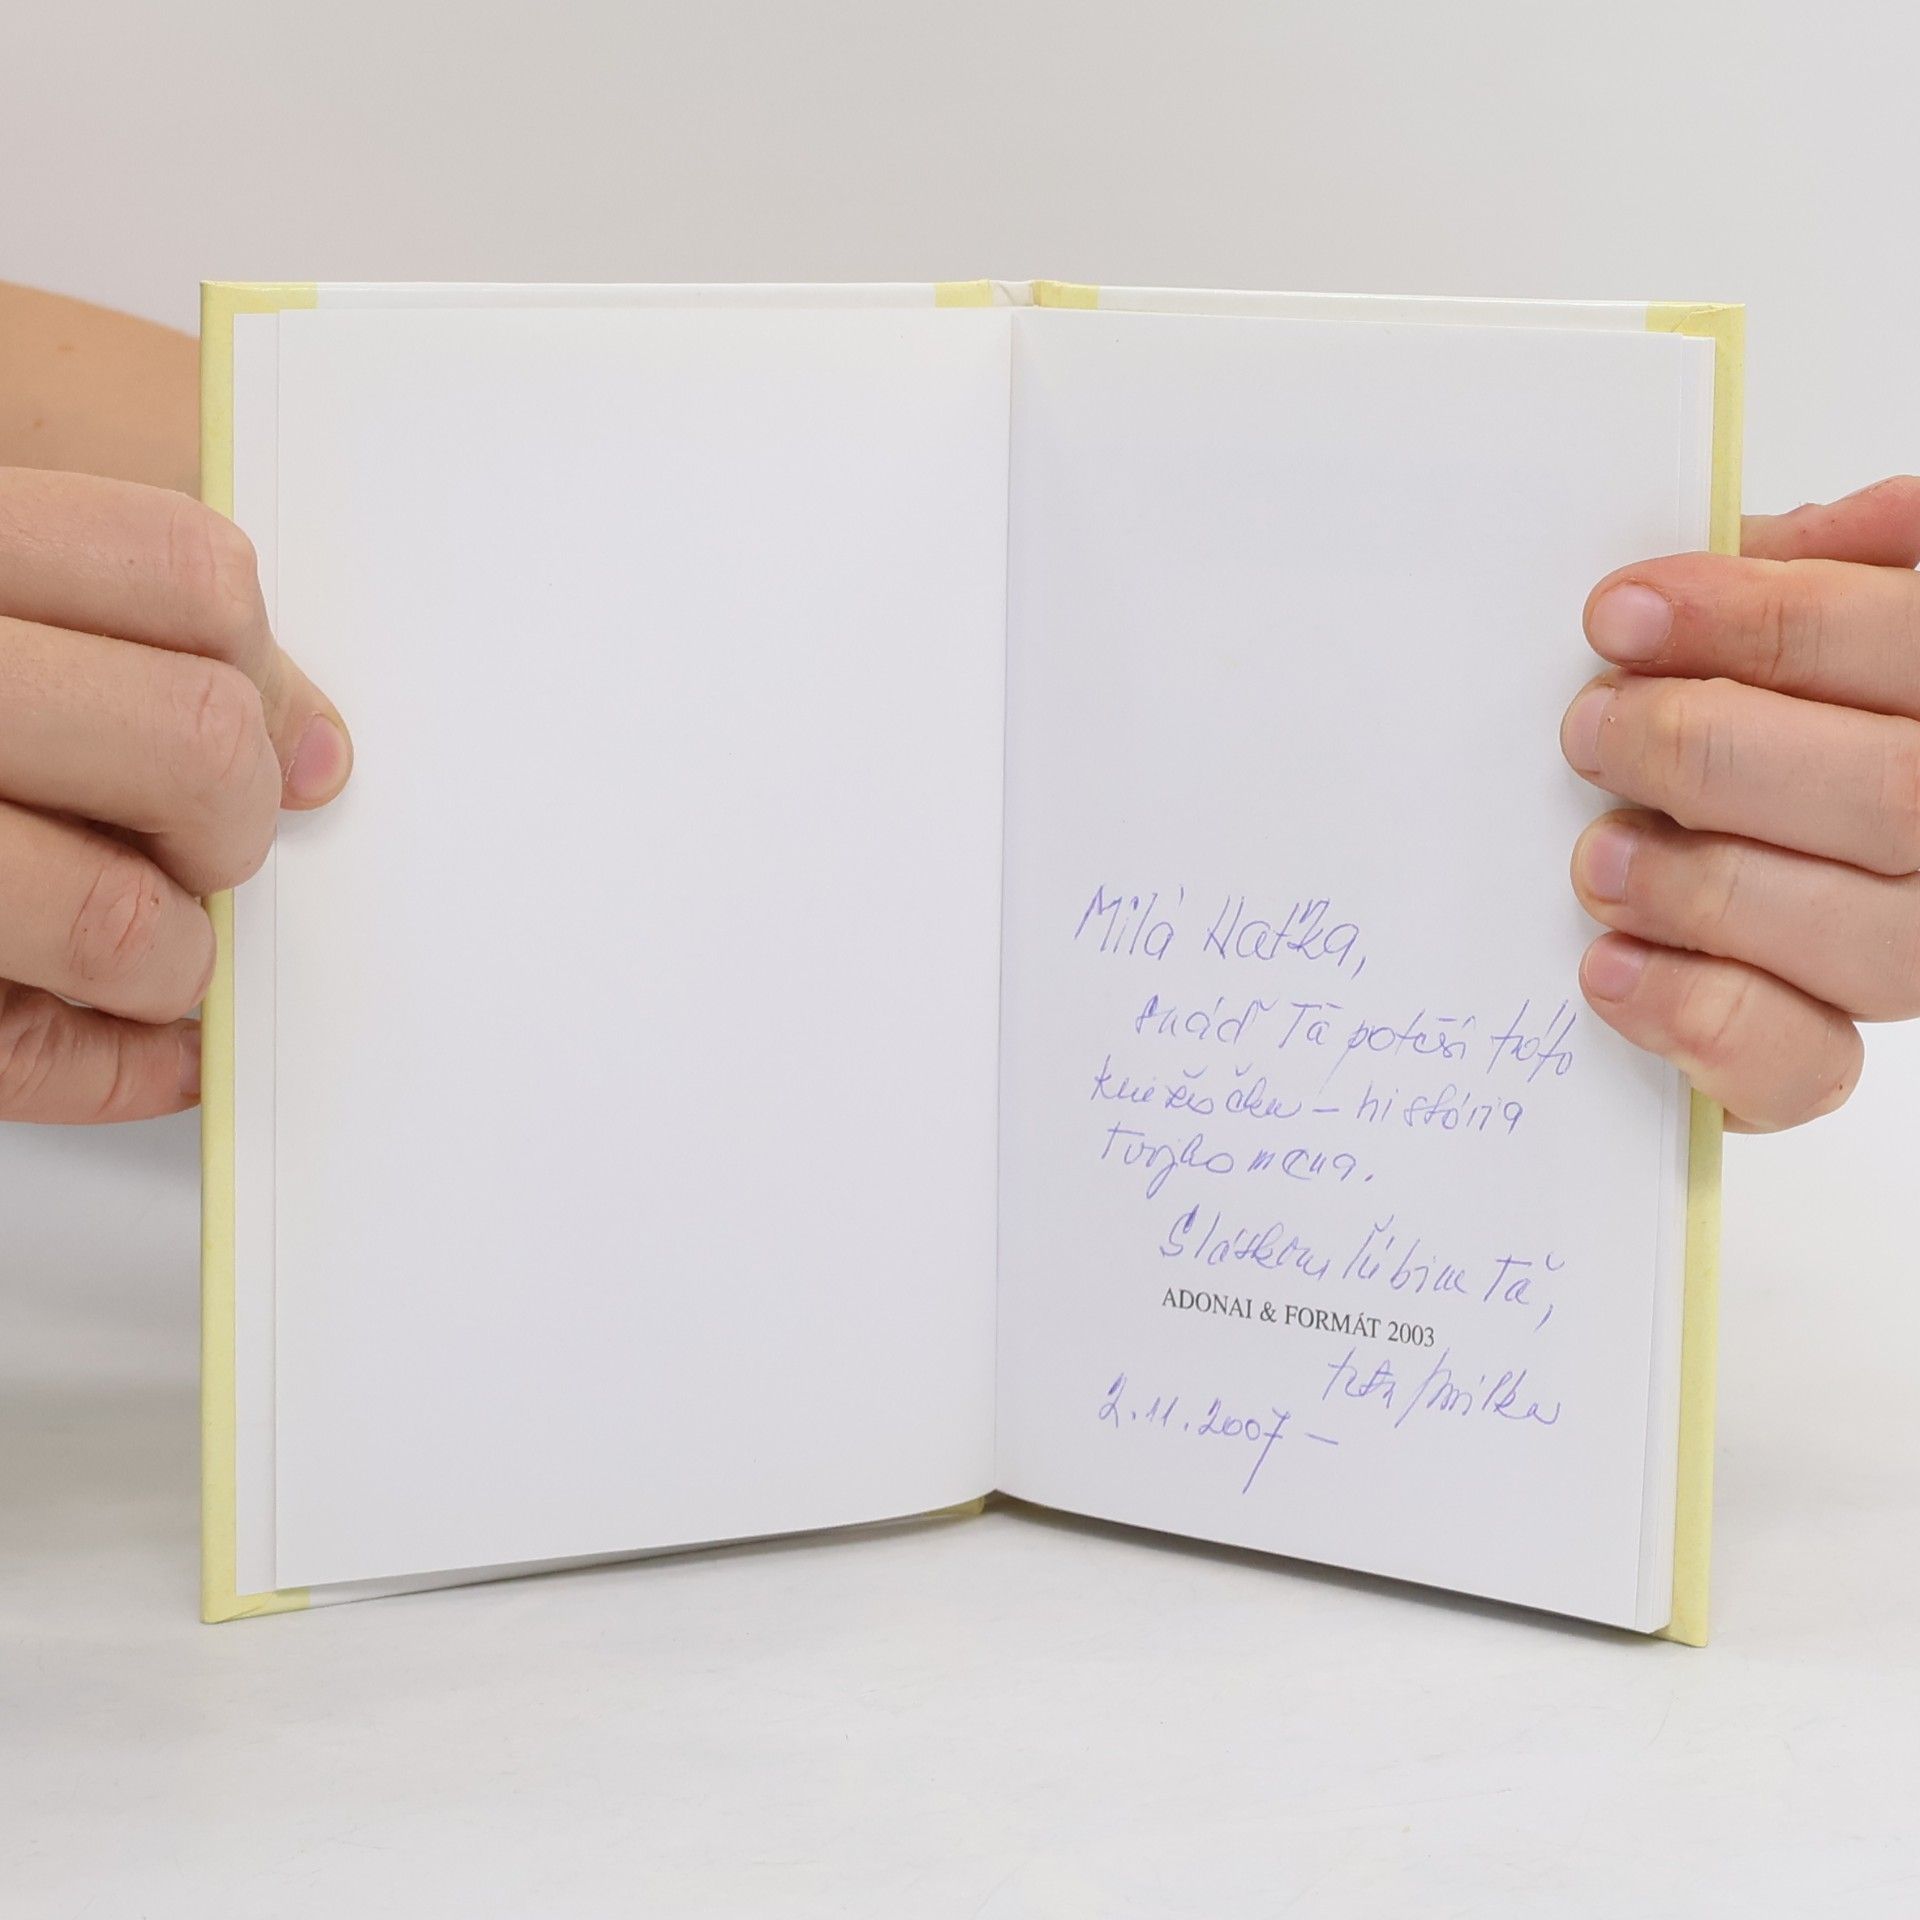 Milá Naťka,
snáď Ťa poteší táto
kniežočka – história
Tvojho mena.
S láskou ľúbim Ťa,
ADONAI & FORMÁT 2003
2.11.2007 –